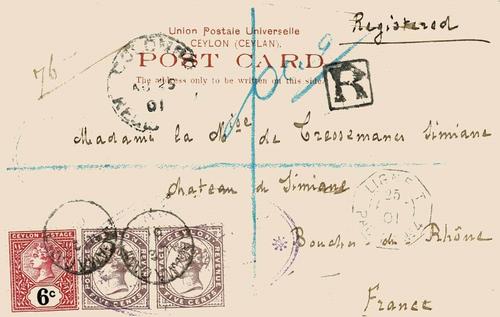 Registered
Union Postale Universelle
CEYLON (CEYLAN).
POST CARD
The address only to be written on this side
76
R
COLOMBO
AU 25
01
Madame la Mise de Tressemanes Simiane
Chateau de Simiane
LIGNE T
25
01
Bouches du Rhône
France
CEYLON POSTAGE
6c
FIVE CENTS
FIVE CENTS